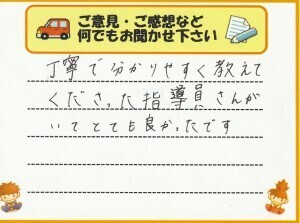 ご意見・ご感想など
何でもお聞かせ下さい
丁寧で分かりやすく教えて
くださった指導員さんが
いてとても良かったです